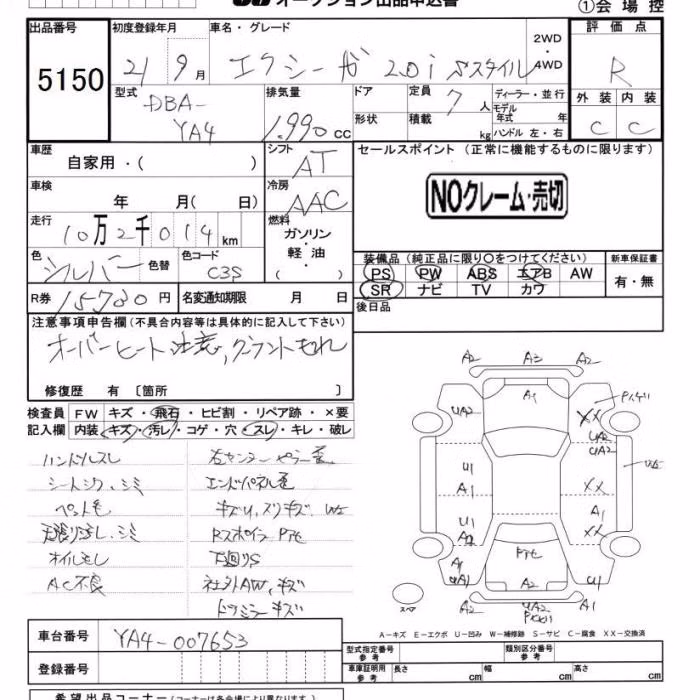 オークション出品申込書
①会場控
出品番号
5150
初度登録年月
21 9月
車名・グレード
エクシーガ 2.0i Sスタイル
2WD
・
4WD
評価点
R
外装 内装
C C
型式
DBA-
YA4
排気量
1.990 cc
ドア
形状
定員 7人
積載 kg
ディーラー・並行
モデル年式 年
ハンドル 左・右
車歴
自家用・( )
シフト
AT
車検
年 月( 日)
冷房
AAC
走行
10万2千014km
燃料
ガソリン
・
軽油
( )
色
シルバー
色替
色コード
C3S
R券 15780円
名変通知期限 月 日
セールスポイント (正常に機能するものに限ります)
NOクレーム・売切
装備品 (純正品に限り○をつけてください)
PS PW ABS エアB AW
SR ナビ TV カワ
新車保証書
有・無
後日品
注意事項申告欄(不具合内容等は具体的に記入して下さい)
オーバーヒート注意,クーラントもれ
修復歴 有 〔箇所 〕
検査員 FW キズ・飛石・ヒビ割・リペア跡・×要
記入欄 内装 キズ・汚レ・コゲ・穴・スレ・キレ・破レ
ハンドルスレ
シートシワ.シミ
ペット毛
天張り汚レ.シミ
オイルもレ
AC不良
エンドパネル歪
キズU,スリキズ.W2
RスポイラーPアセ
下廻りS
社外AW,キズ
ドアミラーキズ
A2 A3 A2
A1
UA2
XX
UA2
UA2
U1
A1
XX
A1
U1
A2
XX
Pアセ
A1
U1
A2
A1 UA2 A1
スペア
A-キズ E-エクボ U-凹み W-補修跡 S-サビ C-腐食 XX-交換済
車台番号 YA4-007653
登録番号
型式指定番号
参考
類別区分番号
参考
車庫証明用
参考
長さ cm 幅 cm 高さ cm
希望出品コーナー(コーナーは各会場により異なります)